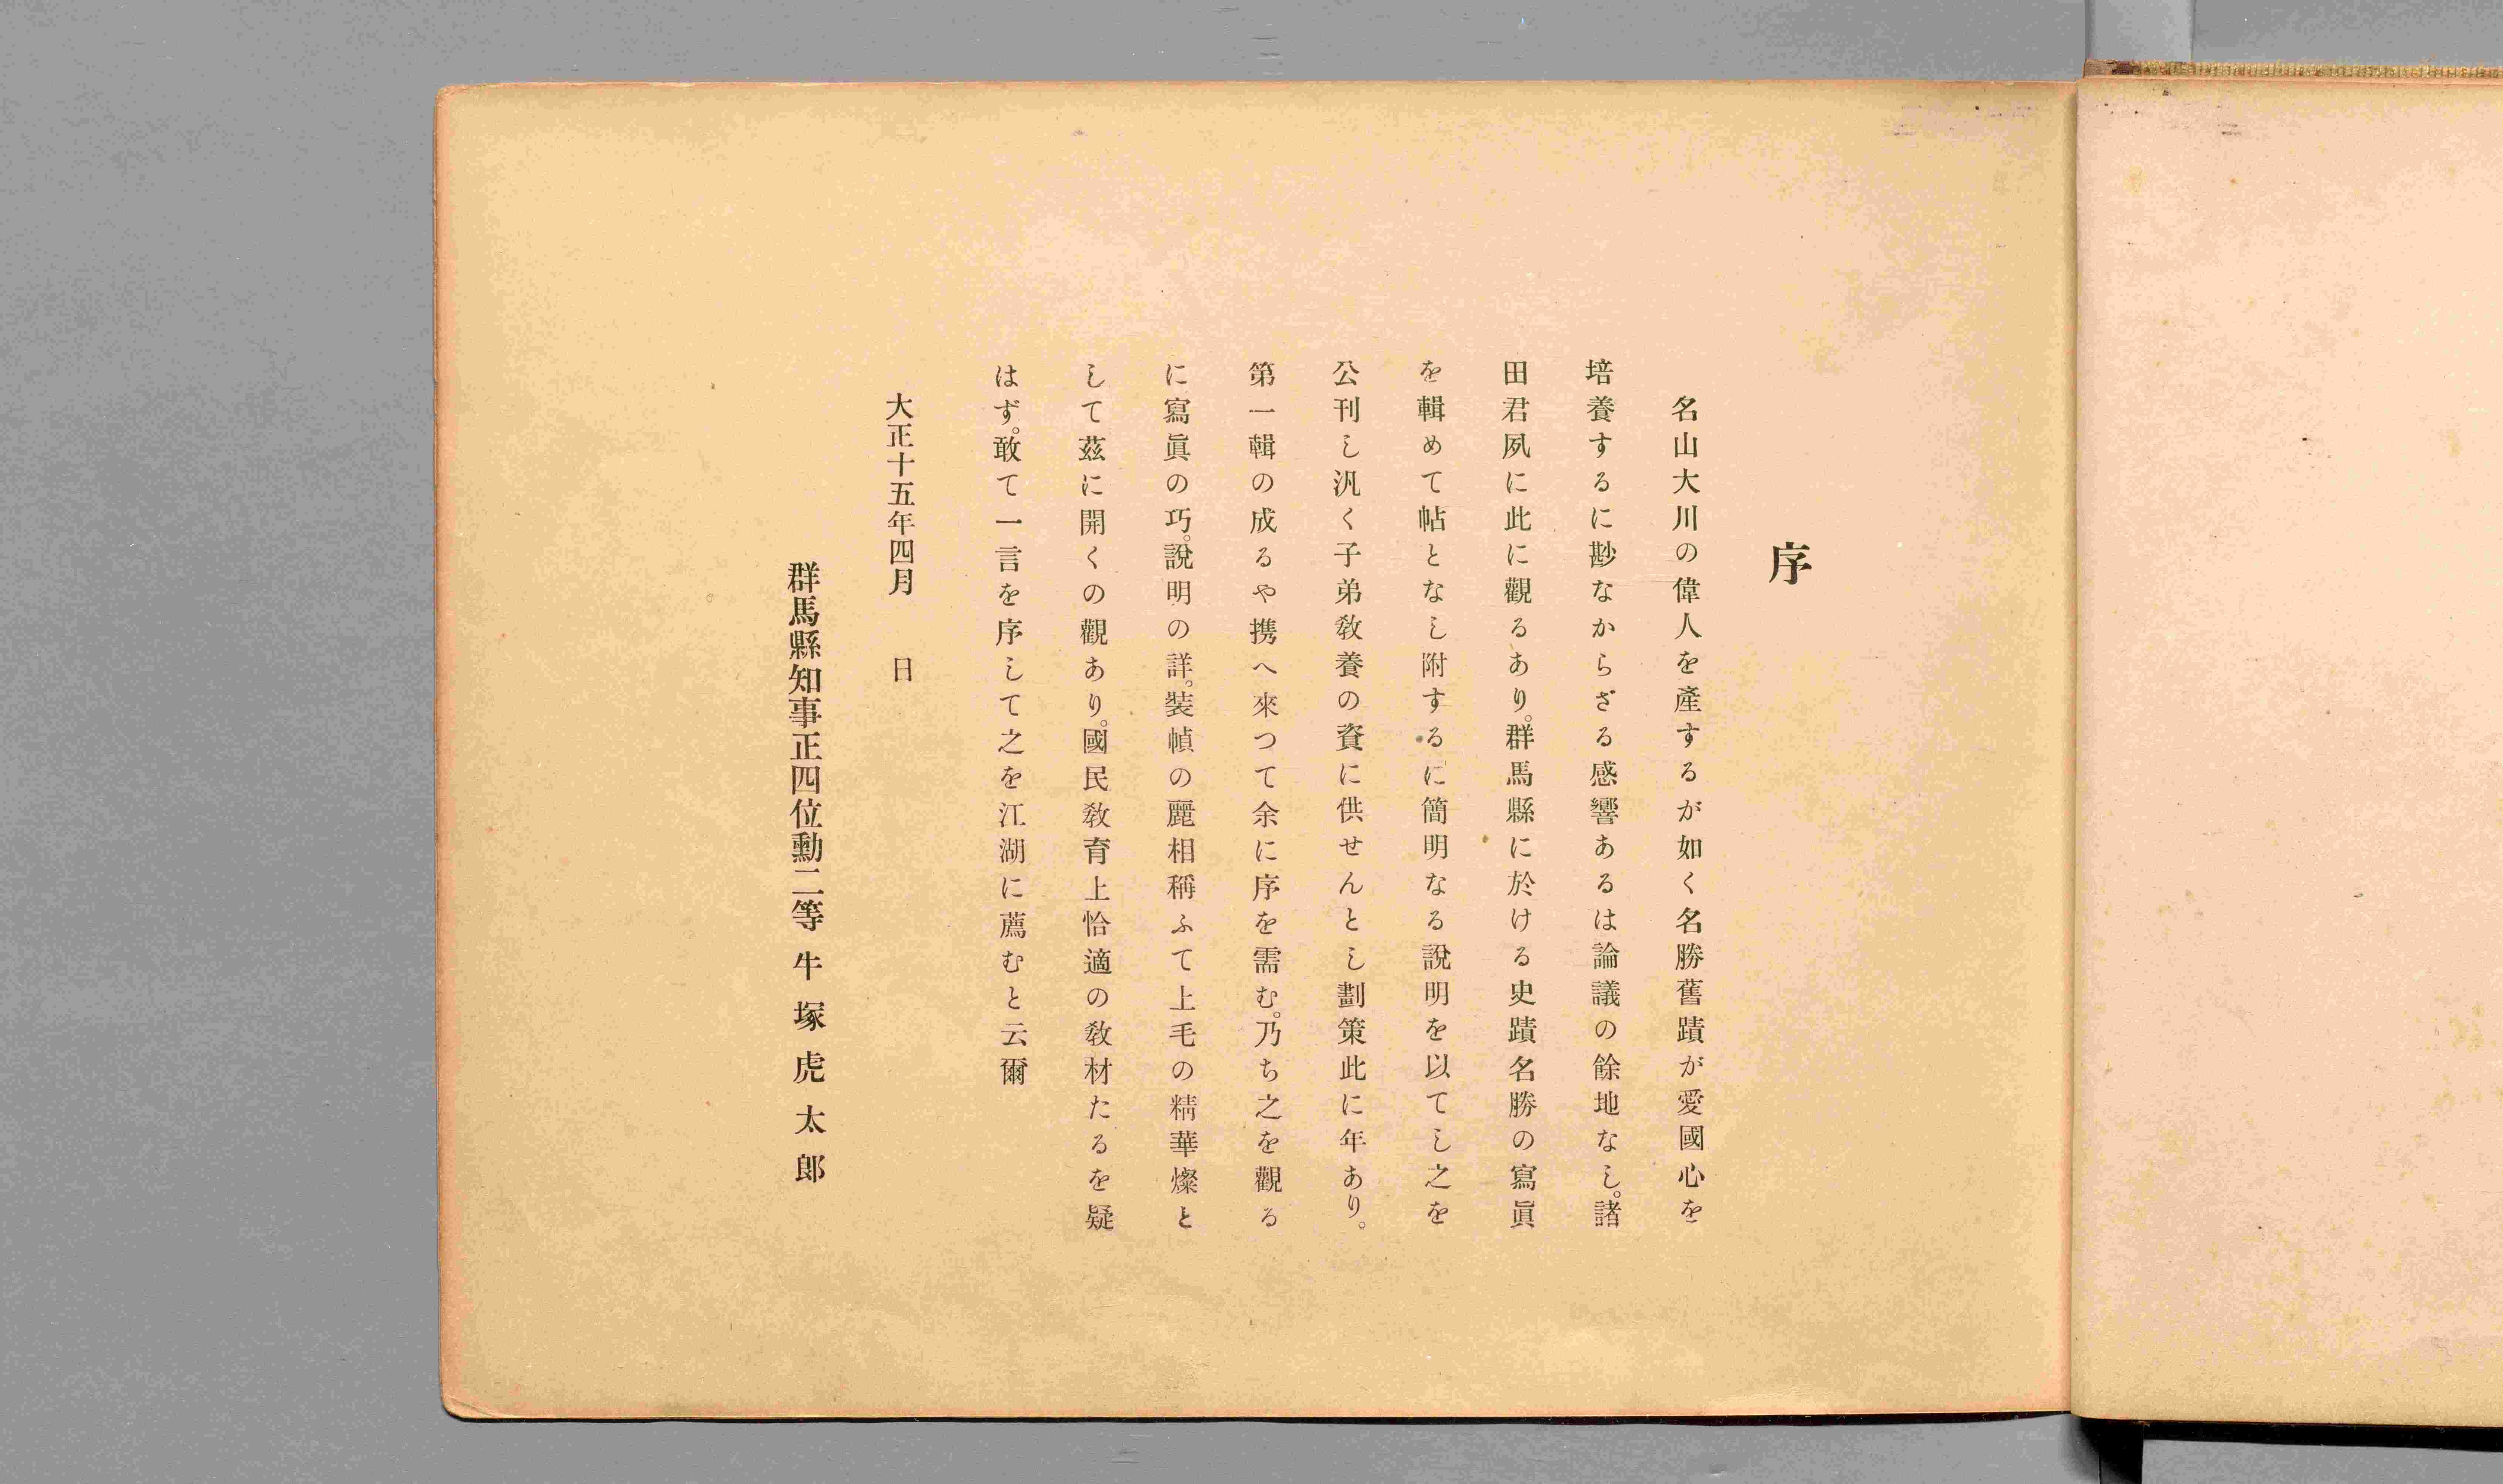 序
名山大川の偉人を產するが如く名勝舊蹟が愛國心を
培養するに尠なからざる感響あるは論議の餘地なし。諸
田君夙に此に觀るあり。群馬縣に於ける史蹟名勝の寫眞
を輯めて帖となし附するに簡明なる說明を以てし之を
公刊し汎く子弟敎養の資に供せんとし劃策此に年あり。
第一輯の成るや携へ來つて余に序を需む。乃ち之を觀る
に寫眞の巧。說明の詳。裝幀の麗相稱ふて上毛の精華燦と
して茲に開くの觀あり。國民敎育上恰適の敎材たるを疑
はず。敢て一言を序して之を江湖に薦むと云爾
大正十五年四月　　日
群馬縣知事正四位勳二等 牛塚虎太郎